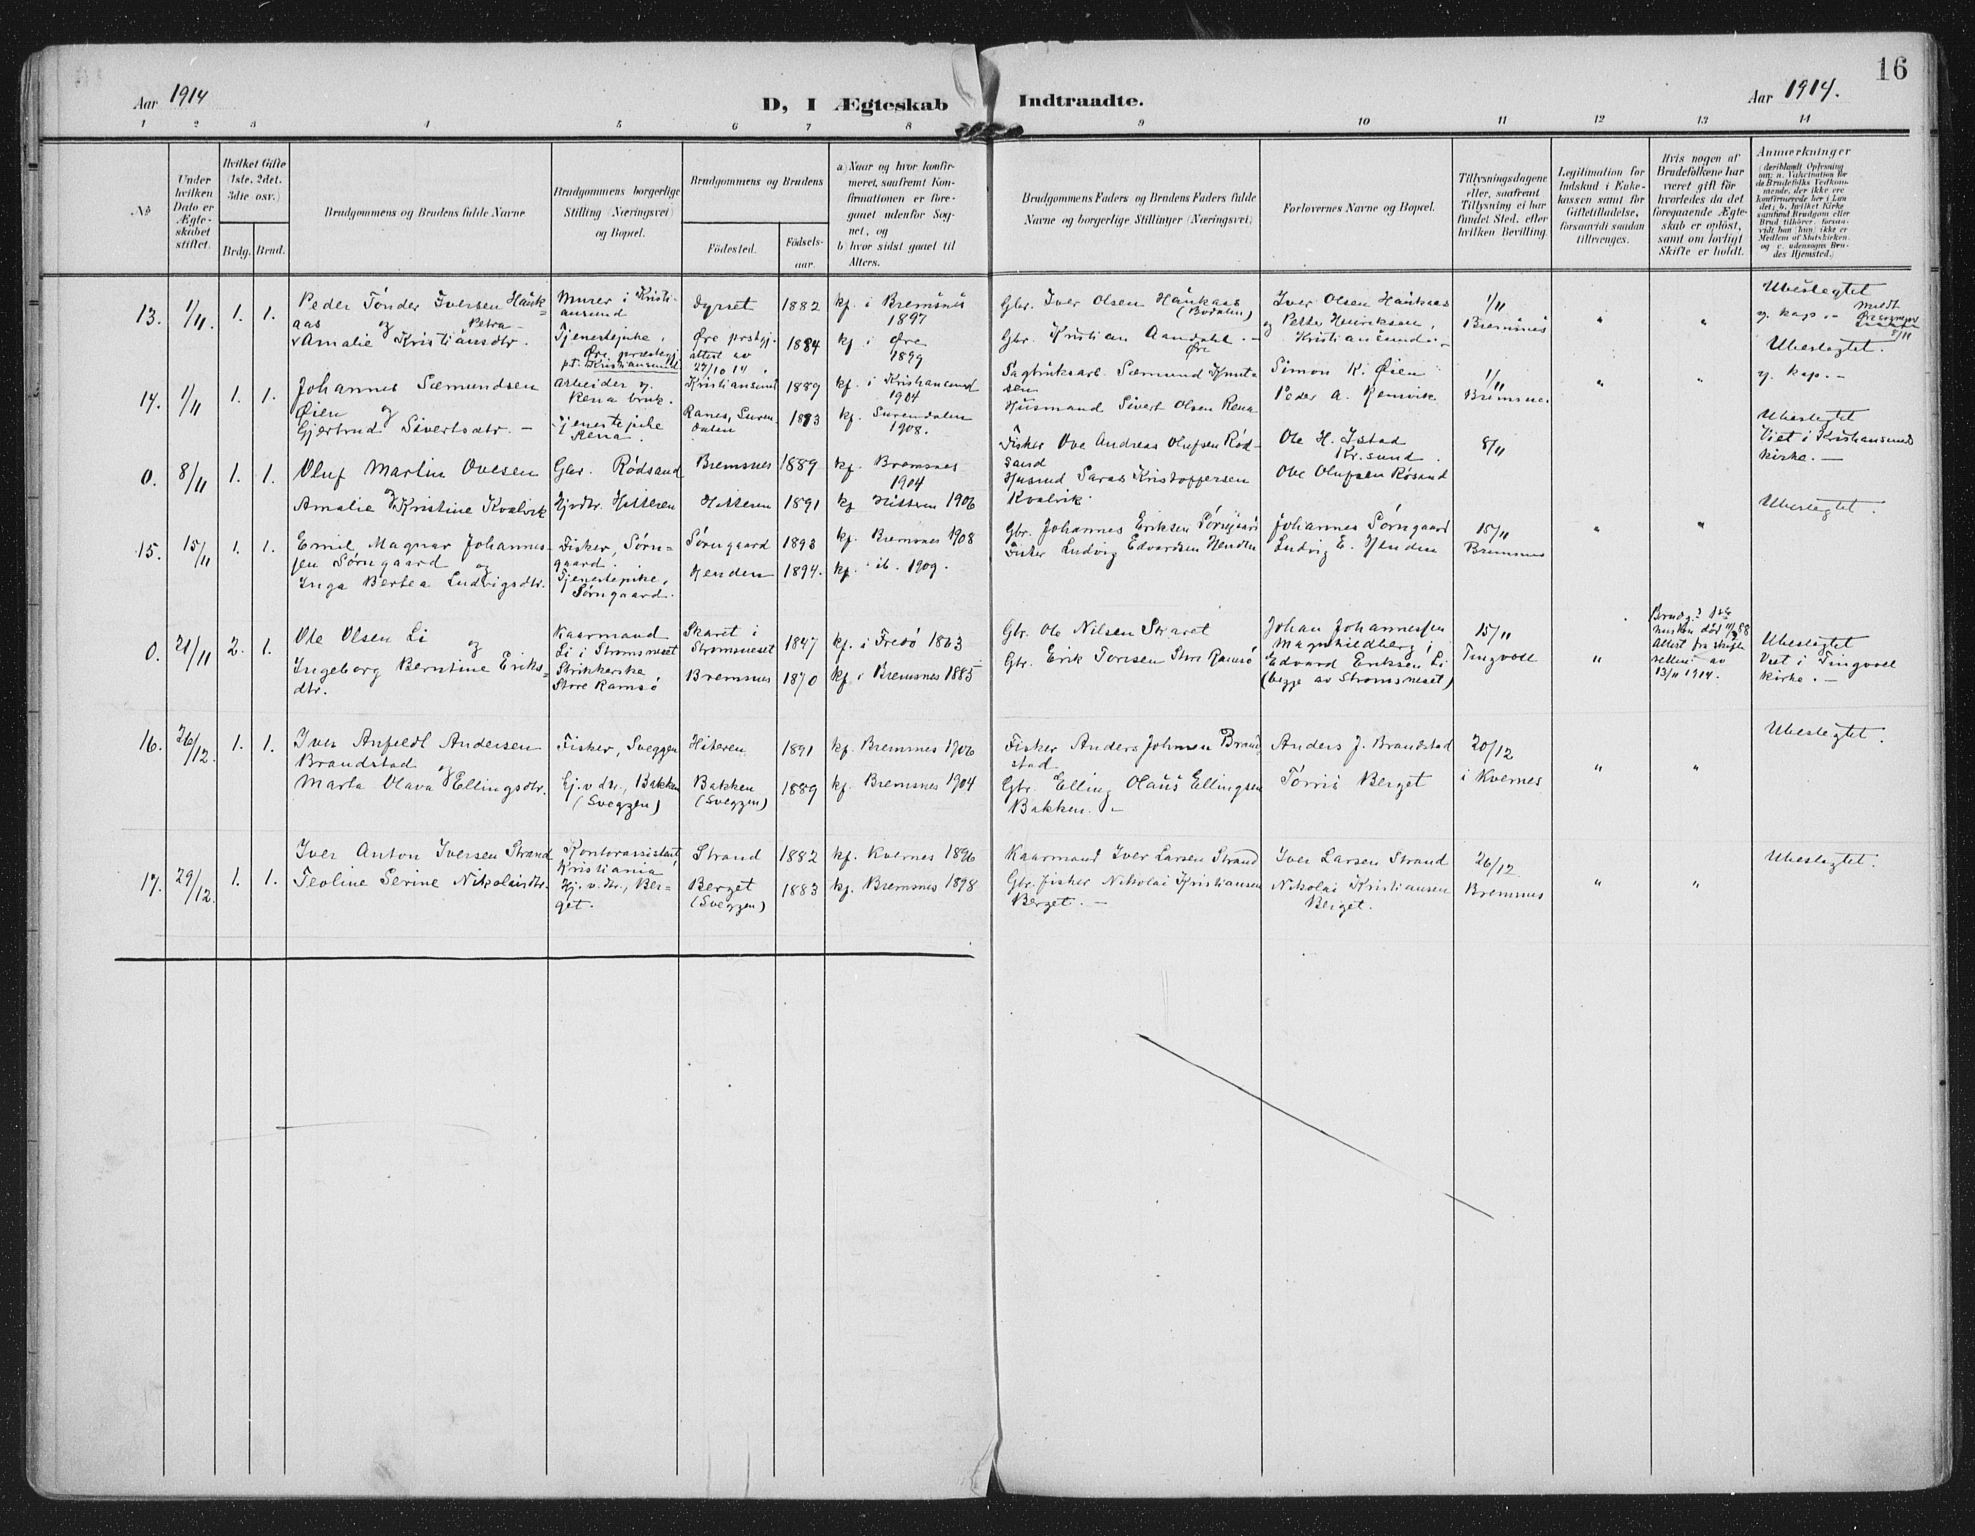 16
Aar 1914
D, I Ægteskab Indtraadte.
Aar 1914.
1 2 3 4 5 6 7 8 9 10 11 12 13 14
No
Under hvilken Dato er Ægteskabet stiftet.
Hvilket Gifte (1ste, 2det, 3die osv.)
Brdg. Brud.
Brudgommens og Brudens fulde Navne
Brudgommens borgerlige Stilling (Næringsvei) og Bopæl.
Brudgommens og Brudens
Fødested. Fødselsaar.
a) Naar og hvor konfirmeret, saafremt Konfirmationen er foregaaet udenfor Sognet, og
b) hvor sidst gaaet til Alters.
Brudgommens Faders og Brudens Faders fulde Navne og borgerlige Stillinger (Næringsvei)
Forlovernes Navne og Bopæl.
Tillysningsdagene eller, saafremt Tillysning ei har fundet Sted, efter hvilken Bevilling.
Legitimation for Indskud i Enkekassen samt for Giftetilladelse, forsaavidt saadan tiltrænges.
Hvis nogen af Brudefolkene har været gift før hvorledes da det foregaaende Ægteskab er opløst, samt om lovligt Skifte er holdt.
Anmærkninger
13. 1/11. 1. 1. Peder Tønder Iversen Haukaas og Petra Amalie Kristiansdtr.
Murer i Kristiansund
Tjenestepike, Øre præstegj. pt. Kristiansund
Dyrset 1882 kf. i Bremsnes 1897
Øre prstgj. attest av 29/10 14. 1884 kf. i Øre 1899
Gbr. Iver Olsen Haukaas (Bodalen)
Gbr. Kristian Aandahl. - Øre
Iver Olsen Haukaas og Petter Henriksen, Kristiansund. -
1/11 Bremsnes " "
Ubeslegtet y. kap. -
14. 1/11 1. 1. Johannes Sæmundsen Øien og Gjertrud Sivertsdtr. -
Arbeider og. Rena bruk.
Tjenestepike Rena.
Kristiansund 1889 kf. i Kristiansund 1904
Ranes, Surendalen 1883 kf. Surendalen 1908.
Sagbruksarb. Sæmund Knutsen
Husmand Sivert Olsen Rena
Simon K. Øien
Peder A. Remvik
1/11 Bremsnes " "
Ubeslegtet. y. kap. -
0. 8/11 1. 1. Oluf Martin Ovesen og Amalie Kristine Kvalvik
Gbr. Rødsand Bremsnes 1889 kf. Bremsnes 1904
Hjvdtr. Hitteren Hitteren 1891 kf Hitteren 1906
Fisker Ove Andreas Olufsen Rødsand
Husmd Saras Kristoffersen Kvalvik
Ole H. Istad Kr.sund.
Ove Olufsen Røsand
8/11
Ubeslegtet Viet i Kristiansunds kirke. -
15. 15/11 1. 1. Emil Magnar Johannesen Sørngaard og Inga Bertea Ludvigsdtr.
Fisker, Sørngaard. Sørngaard 1893 kf. Bremsnes 1908
Tjenestepike, Sørngaard. Henden 1894. kf. ib. 1909.
Gbr. Johannes Eriksen Sørngaard
Fisker Ludvig Edvardsen Henden
Johannes Sørngaard
Ludvig E. Henden
15/11 Bremsnes " "
Ubeslegtet.
0. 21/11 2. 1. Ole Olsen Li og Ingeborg Berntine Eriksdtr.
Kaarmand Li i Strømsneset
Strikkerske, Store Ramsø
Skaret i Strømsneset 1847 kf. i Fredø 1863
Bremsnes 1870 kf. i Bremsnes 1885
Gbr. Ole Nilsen Skaret
Gbr. Erik Toresen Store Ramsø
Johan Johannessen Magnhildberg,
Edvard Eriksen Li (begge av Strømsneset)
15/11 Tingvoll "
Brudg.s 1ste hustru død
Attest fra skifteretten av 13/11 1914.
Ubeslegtet Viet i Tingvoll kirke. -
16. 26/12. 1. 1. Iver Anfeldt Andersen Brandstad og Marta Olava Ellingsdtr.
Fisker, Sveggen Hiteren 1891 kf. Bremsnes 1906
Gj.v.dtr., Bakken (Sveggen) Bakken (Sveggen) 1889 kf. Bremsnes 1904
Fisker Anders Johnsen Brandstad
Gbr. Elling Olaus Ellingsen Bakken. -
Anders J. Brandstad
Tørris Berget
20/12 i Kvernes " "
Ubeslegtet.
17. 29/12. 1. 1. Iver Anton Iversen Strand
Teoline Serine Nikolaisdtr.
Kontorassistent, Kristiania Strand 1882 kf. Kvernes 1896
Hj. v. dtr., Berget. Berget (Sveggen) 1883 kf. Bremsnes 1898
Kaarmand Iver Larsen Strand
Gbr. fisker Nikolai Kristiansen Berget. -
Iver Larsen Strand
Nikolai Kristiansen Berget.
26/12. Bremsnes " "
Ubeslegtet.